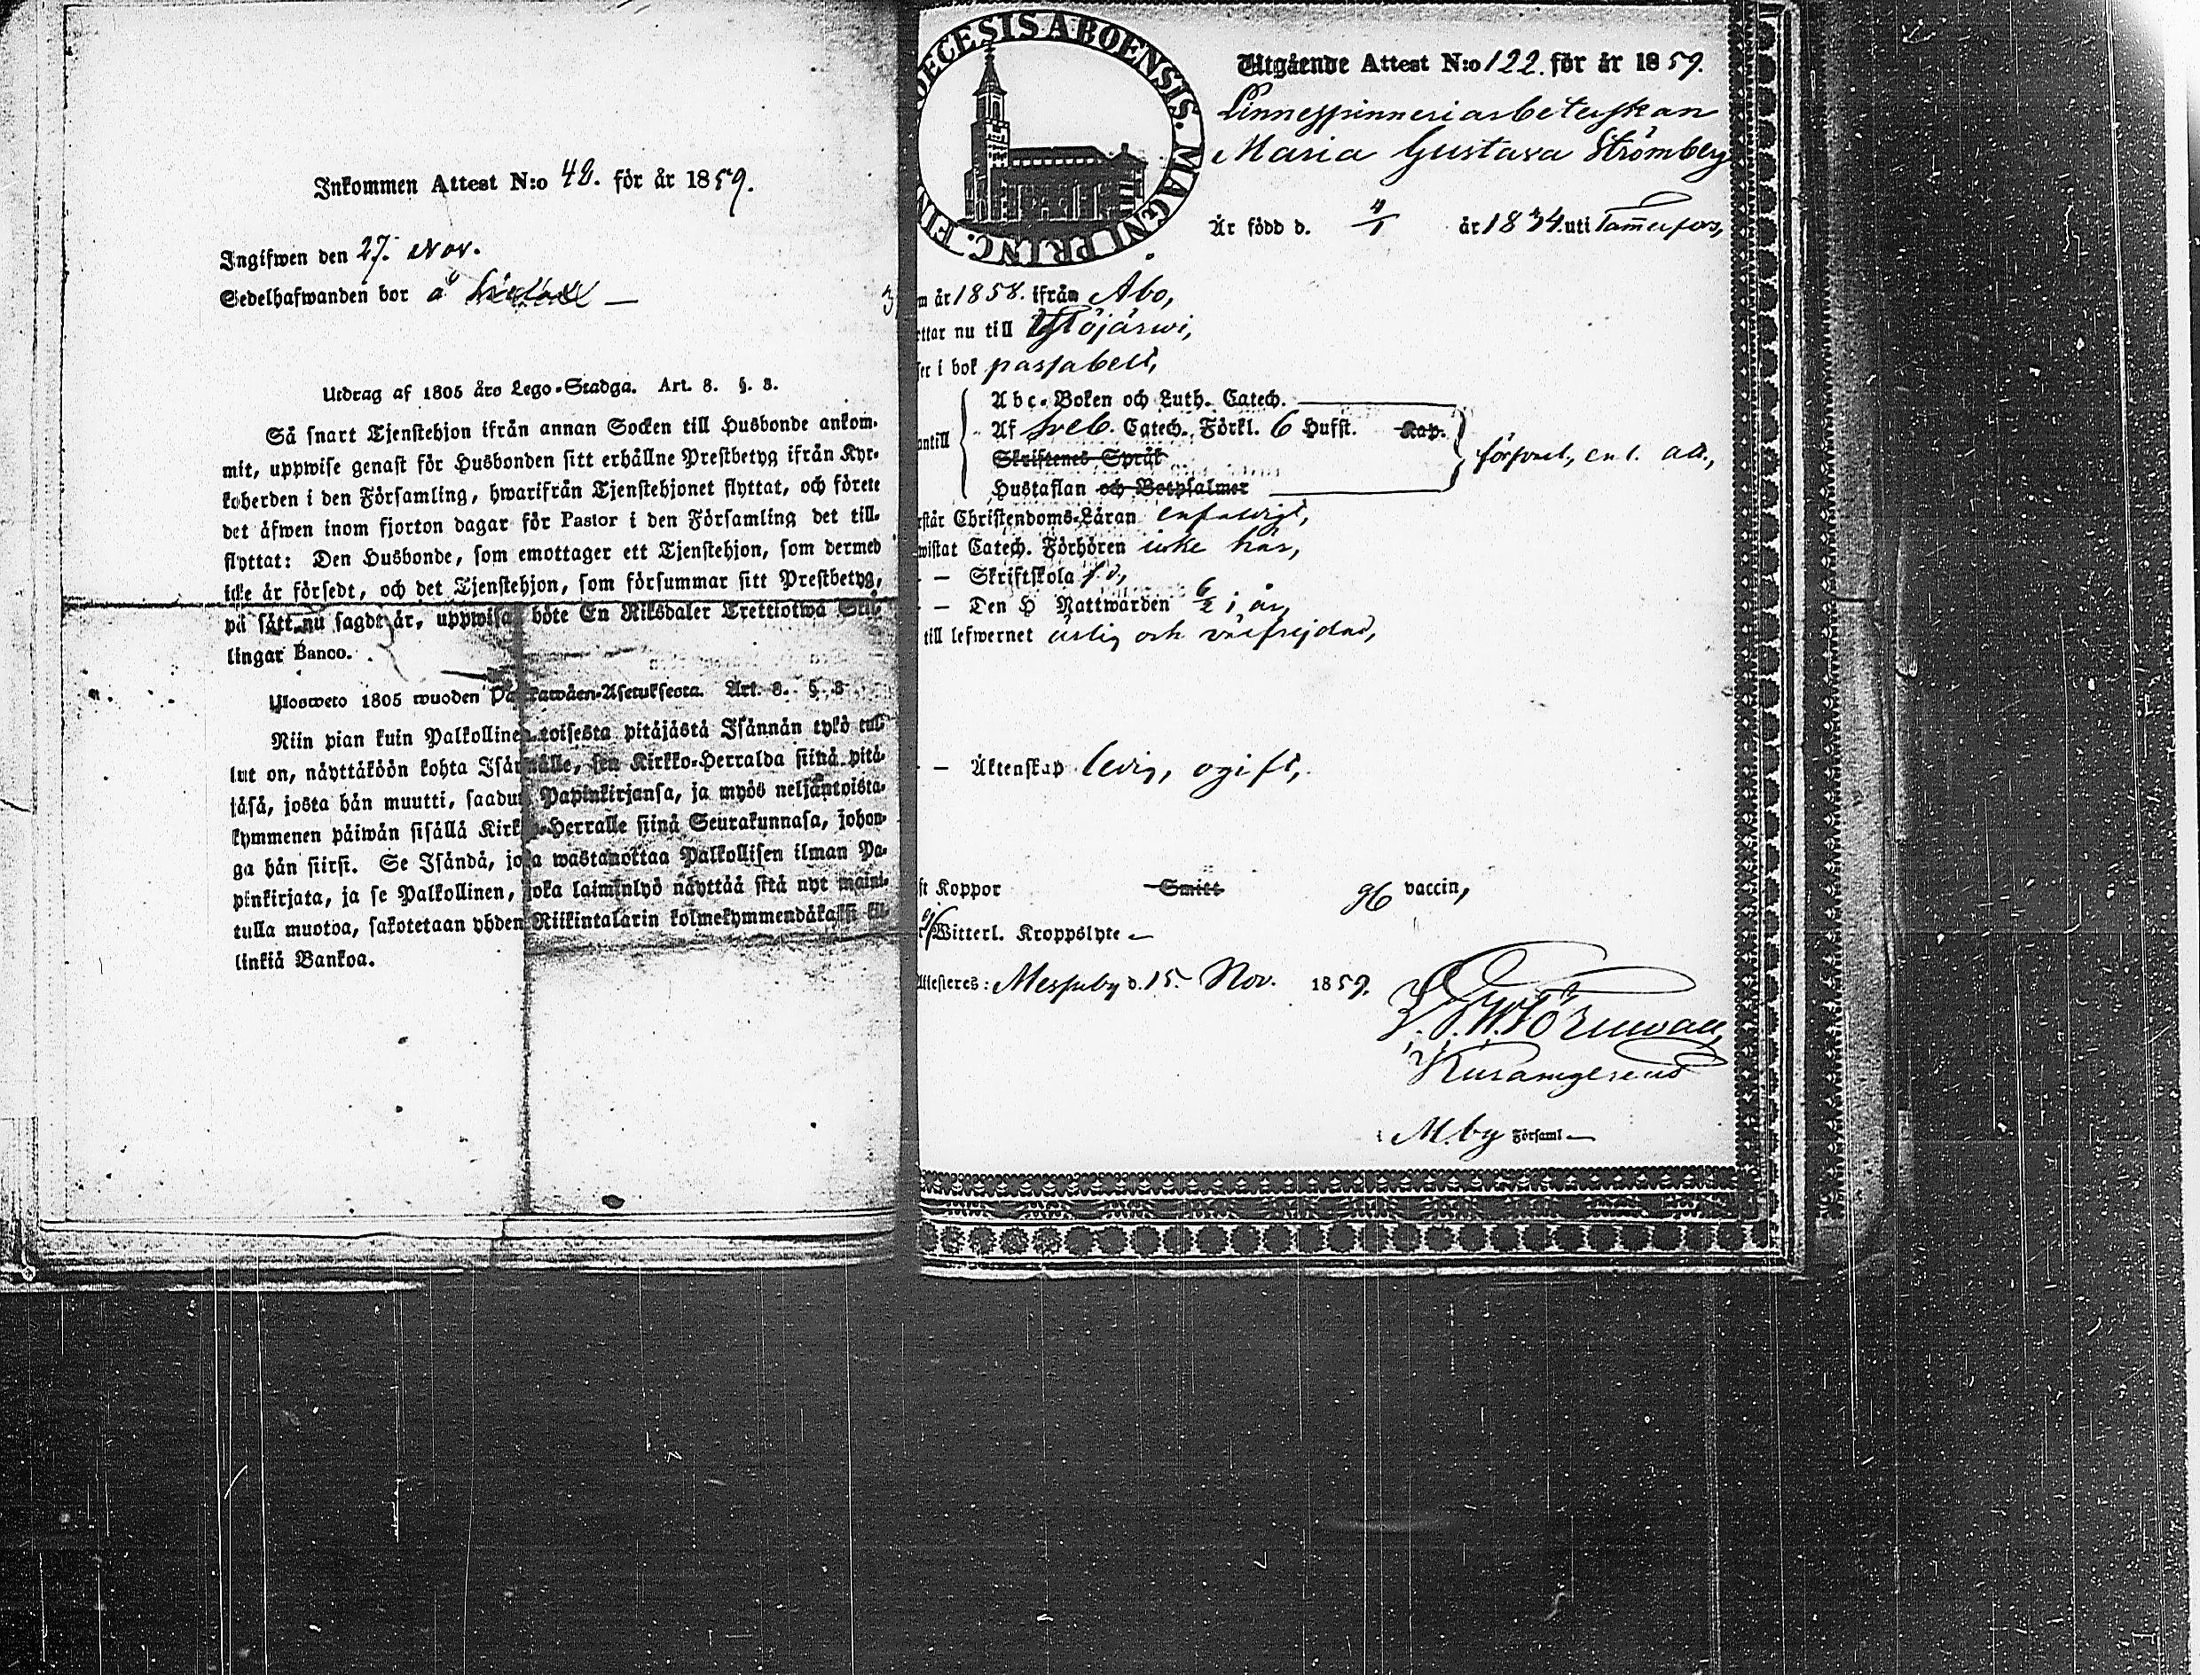 Inkommen Attest N:o 42. för år 1859.
Ingifwen den 27. Nov.
Sedelhafwanden bor å
Utdrag af 1805 års Lego-Stadga. Art. 8. §. 3.
Så snart Tjenstehjon ifrån annan Socken till Husbonde ankom-
mit, uppwise genast för Husbonden sitt erhållne Prestbetyg ifrån Kyr-
koherden i den Församling, hwarifrån Tjenstehjonet flyttat, och förete
det äfwen inom fjorton dagar för Pastor i den Församling det till-
flyttat: Den Husbonde, som emottager ett Tjenstehjon, som dermed
icke är försedt, och det Tjenstehjon, som försummar sitt Prestbetyg,
på sätt nu sagdt är, uppwisa böte En Riksdaler Trettiotwå Skil-
lingar Banco.
Ulosweto 1805 wuoden Pa kawäen-Asetuksesta. Art. 8. §. 3
Niin pian kuin Palkollinen toisesta pitäjästä Isännän tykö tul-
lut on, näyttäköön kohta Isännälle, sen Kirkko-Herralda siinä pitä-
jäsä, josta hän muutti, saadun Papinkirjansa, ja myös neljäntoista-
kymmenen päiwän sisällä Kirkko-Herralle siinä Seurakunnasa, johon-
ga hän siirsi. Se Isändä, joka wastanottaa Palkollisen ilman Pa-
pinkirjata, ja se Palkollinen, joka laiminlyö näyttää sitä nyt maini-
tulla muotoa, sakotetaan yhden Riikintalarin kolmekymmendäkaksi kil-
linkiä Bankoa.
OECESIS ABOENSIS. MAGNI PRINC. FIN
Utgående Attest N:o 122. för år 1859.
Linnespinneriarbeterskan
Maria Gustava Strömberg
Är född d. 4/1 år 1834 uti Tammerfors,
m år 1858. ifrån Åbo,
ttar nu till Ylöjärwi,
ser i bok passabelt,
Abc-Boken och Luth. Catech.
antill Af Sveb. Catech. Förkl. 6 Hufst. Kap.
Skriftenes Språk
försvarl, enl. ald.,
Hustaflan och Botpsalmer
rstår Christendoms-Läran enfaldigt,
wistat Catech. Förhören icke här,
- - Skriftskola
- - Den H Nattwarden 6/2 i år,
till lefwernet ärlig och välfrejdad,
- - Äktenskap ledig, ogift,
ft Koppor Smitt gl vaccin,
Witterl. Kroppslyte
Attesteres: Messuby d. 15. Nov. 1859.
i M.by Församl